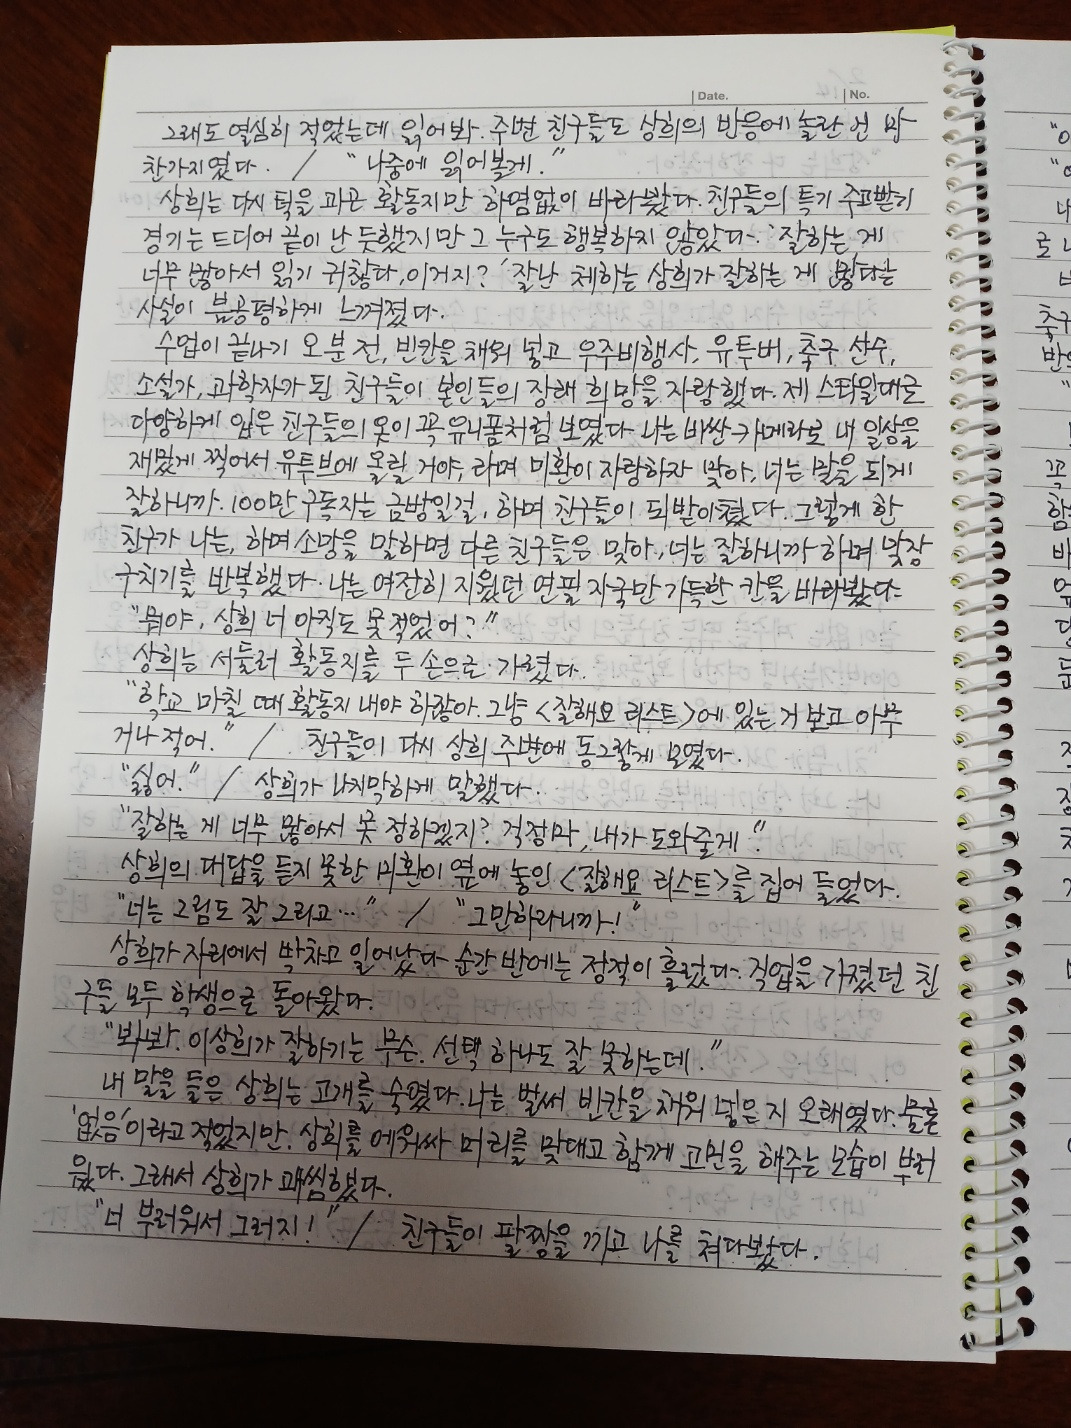 Date.
No.
그래도 열심히 적었는데 읽어봐. 주변 친구들도 상희의 반응에 놀란 건 마
찬가지였다. / "나중에 읽어볼게."
상희는 다시 턱을 괴곤 활동지만 하염없이 바라봤다. 친구들의 특기 주고받기
경기는 드디어 끝이 난 듯했지만 그 누구도 행복하지 않았다. '잘하는 게
너무 많아서 읽기 귀찮다, 이거지?' 잘난 체하는 상희가 잘하는 게 많다는
사실이 불공평하게 느껴졌다.
수업이 끝나기 오 분 전, 빈칸을 채워 넣고 우주비행사, 유투버, 축구 선수,
소설가, 과학자가 된 친구들이 본인들의 장래 희망을 자랑했다. 제 스타일대로
다양하게 입은 친구들의 옷이 꼭 유니폼처럼 보였다. 나는 비싼 카메라로 내 일상을
재밌게 찍어서 유투브에 올릴 거야, 라며 미환이 자랑하자 맞아, 너는 말을 되게
잘하니까. 100만 구독자는 금방일걸, 하며 친구들이 되받아쳤다. 그렇게 한
친구가 나는, 하며 소망을 말하면 다른 친구들은 맞아, 너는 잘하니까 하며 맞장
구치기를 반복했다. 나는 여전히 지웠던 연필 자국만 가득한 칸을 바라봤다.
"뭐야, 상희 너 아직도 못 적었어?"
상희는 서둘러 활동지를 두 손으로 가렸다.
"학교 마칠 때 활동지 내야 하잖아. 그냥 <잘해요 리스트>에 있는 거 보고 아무
거나 적어." / 친구들이 다시 상희 주변에 동그랗게 모였다.
"싫어." / 상희가 나지막하게 말했다.
"잘하는 게 너무 많아서 못 정하겠지? 걱정 마, 내가 도와줄게."
상희의 대답을 듣지 못한 미환이 옆에 놓인 <잘해요 리스트>를 집어 들었다.
"너는 그림도 잘 그리고…" / "그만하라니까!"
상희가 자리에서 박차고 일어났다. 순간 반에는 정적이 흘렀다. 직업을 가졌던 친
구들 모두 학생으로 돌아왔다.
"봐봐. 이상희가 잘하기는 무슨. 선택 하나도 잘 못하는데."
내 말을 들은 상희는 고개를 숙였다. 나는 벌써 빈칸을 채워 넣은 지 오래였다. 물론
'없음'이라고 적었지만. 상희를 에워싸 머리를 맞대고 함께 고민을 해주는 모습이 부러
웠다. 그래서 상희가 괘씸했다.
"너 부러워서 그러지!" / 친구들이 팔짱을 끼고 나를 쳐다봤다.